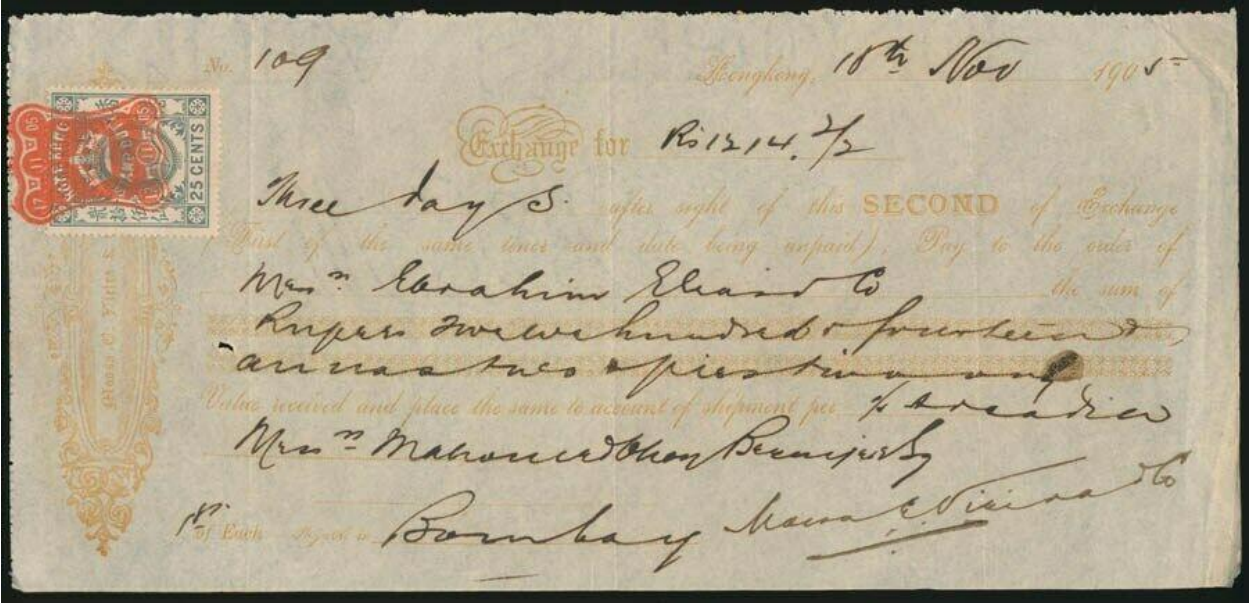 No. 109 Hongkong, 18th Nov 1905
Exchange for Rs 1214. 2/2
Three days after sight of this SECOND of Exchange
(First of the same tenor and date being unpaid) Pay to the order of
Messrs Ebrahim Elias & Co the sum of
Rupees Twelve hundred & fourteen &
annas two & pies two only
Value received and place the same to account of shipment per S/S Arcadia
Messrs Mahomedbhoy
Bombay
of Each
25 CENTS